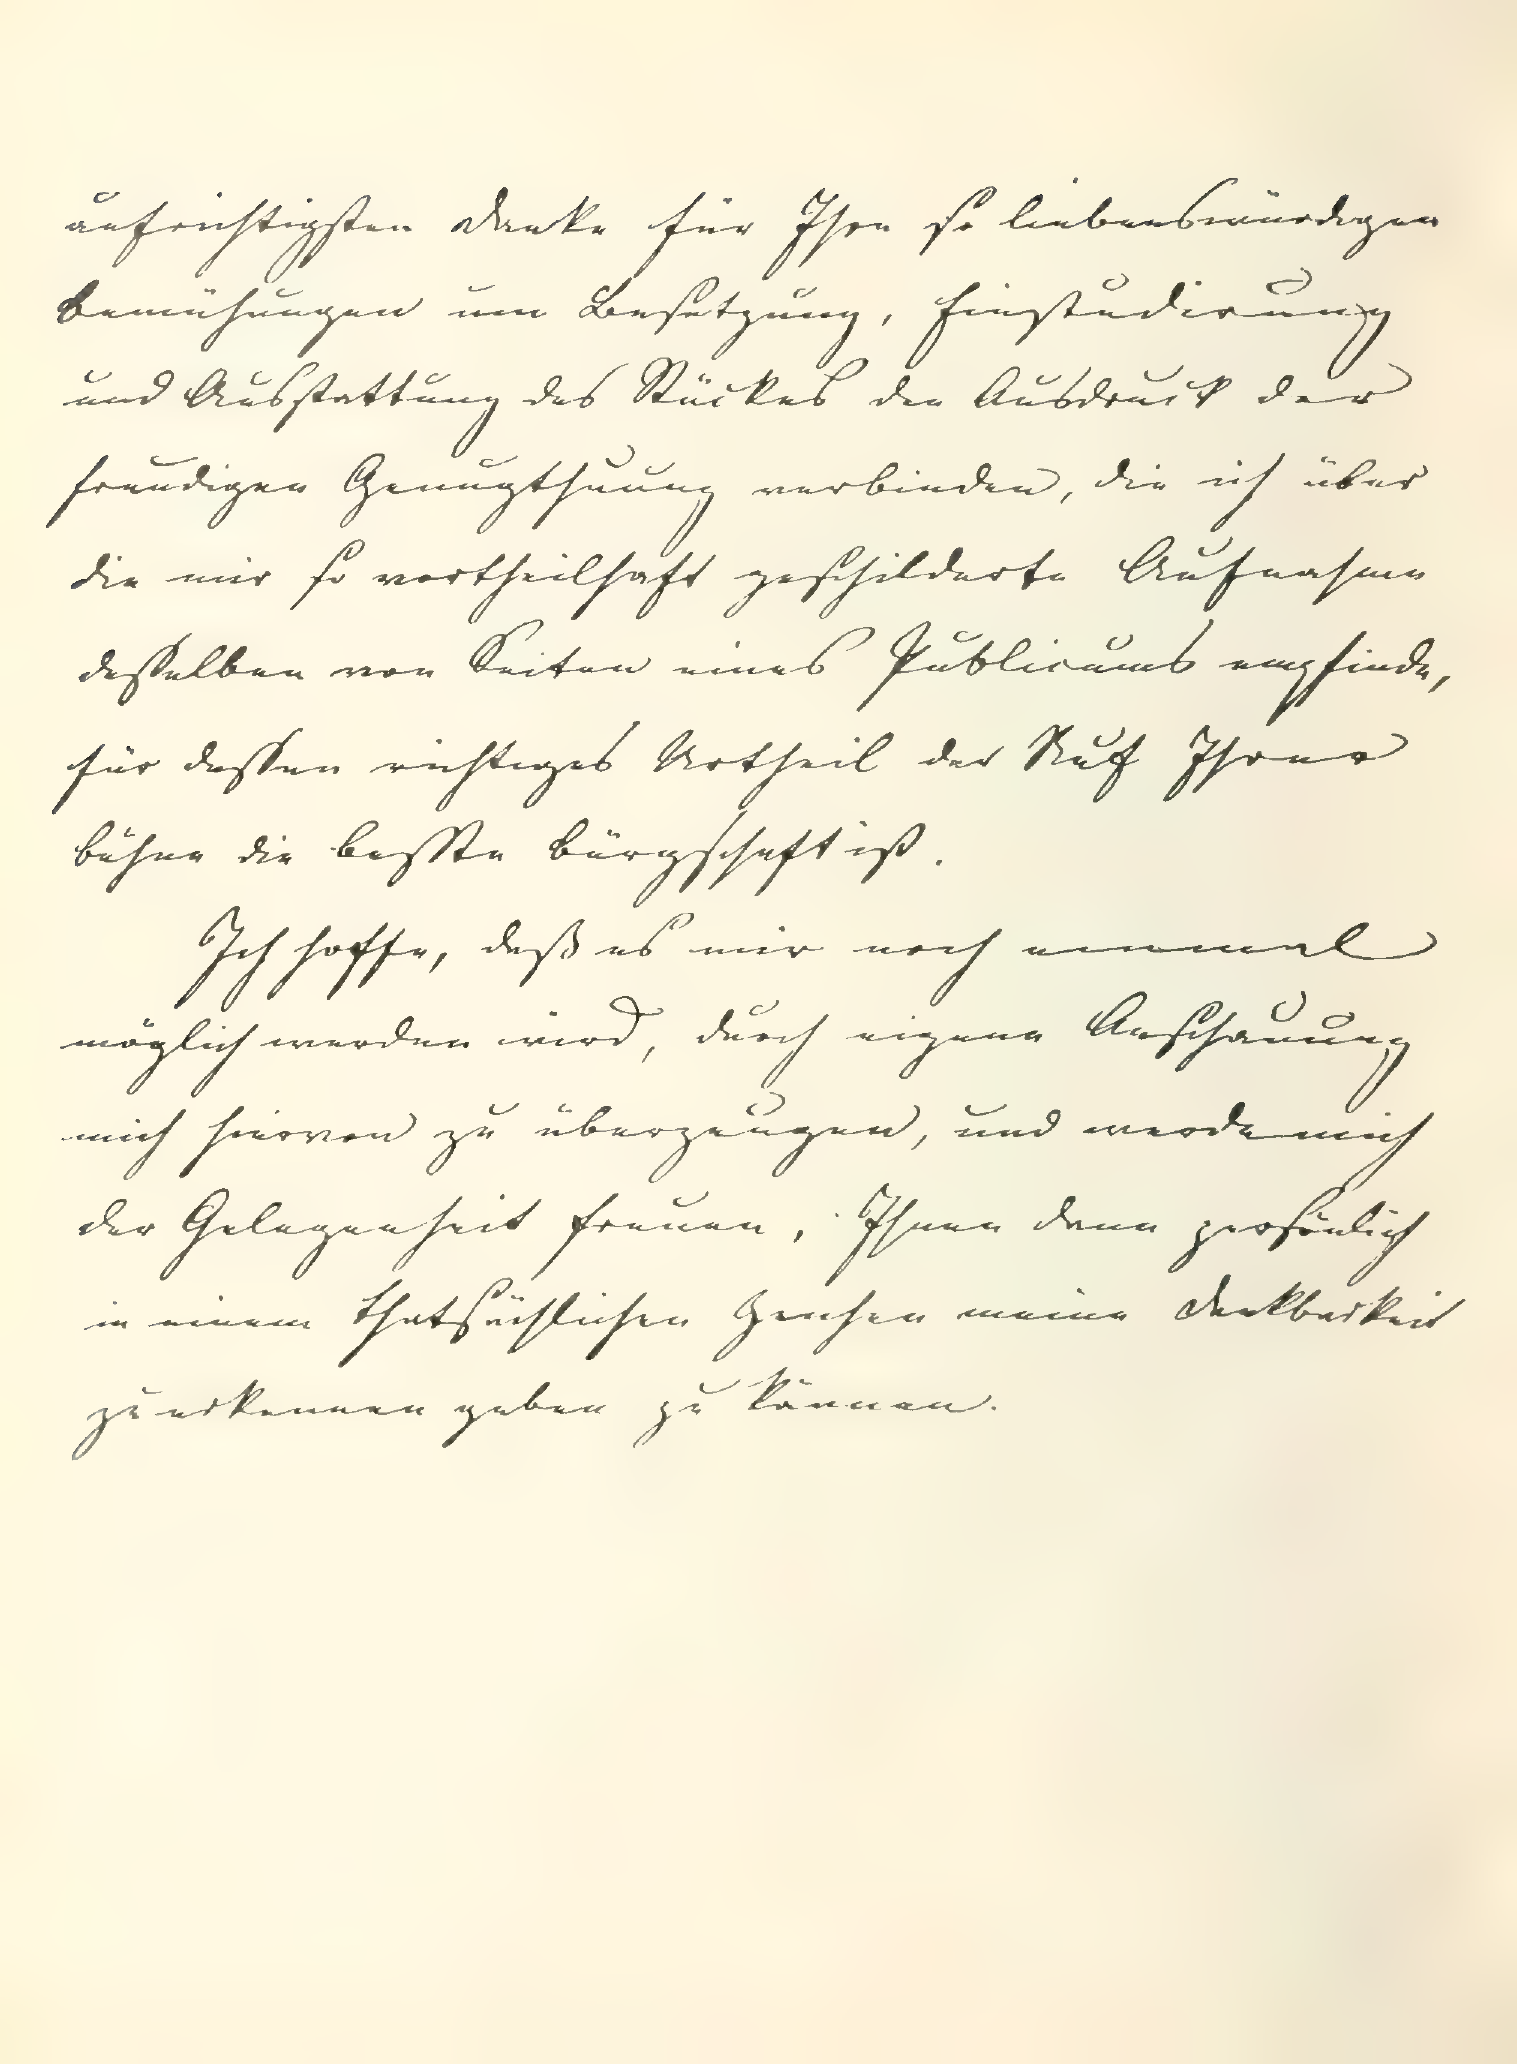 aufrichtigsten Danke für Ihre so liebenswürdigen
Bemühungen um Besetzung, Einstudirung
und Ausstattung des Stückes den Ausdruck der
freudigen Genugthuung verbinden, die ich über
die mir so vortheilhaft geschilderte Aufnahme
desselben von Seiten eines Publicums empfinde,
für dessen richtiges Urtheil der Ruf Ihrer
Bühne die beßte Bürgschaft ist.
Ich hoffe, daß es mir noch einmal
möglich werden wird, durch eigene Anschauung
mich hiervon zu überzeugen, und werde mich
der Gelegenheit freuen, Ihnen dann persönlich
in einem thatsächlichen Zeichen meine Dankbarkeit
zu erkennen geben zu können.